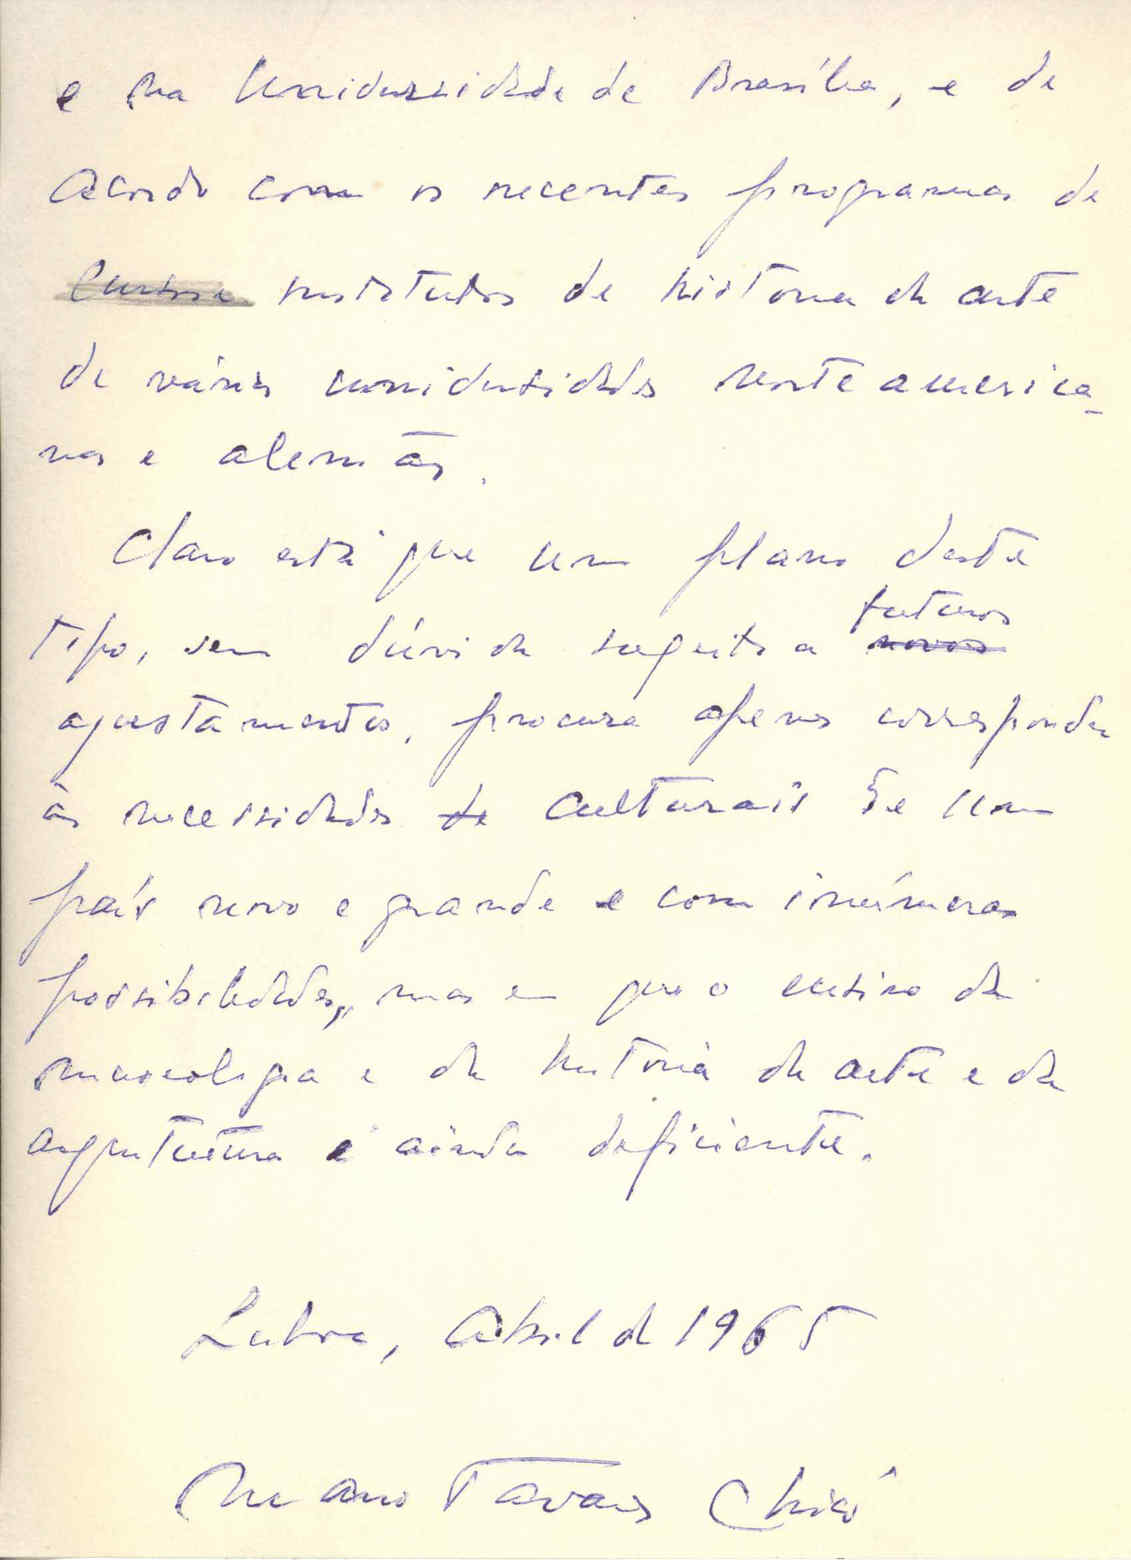 e na Universidade de Brasília, e de
acordo com os recentes programas de
institutos de história da arte
de várias universidades norte america-
nas e alemãs.
Claro está que um plano deste
futuros
tipo, sem dúvida sugeito a novos
ajustamentos, procura apenas corresponder
às necessidades de culturais de um
país novo e grande e com inúmeras
possibilidades, mas em que o ensino da
museologia e da história da arte e da
arquitectura é ainda deficiente.
Lisboa, Abril de 1965
Mario Tavares Chicó